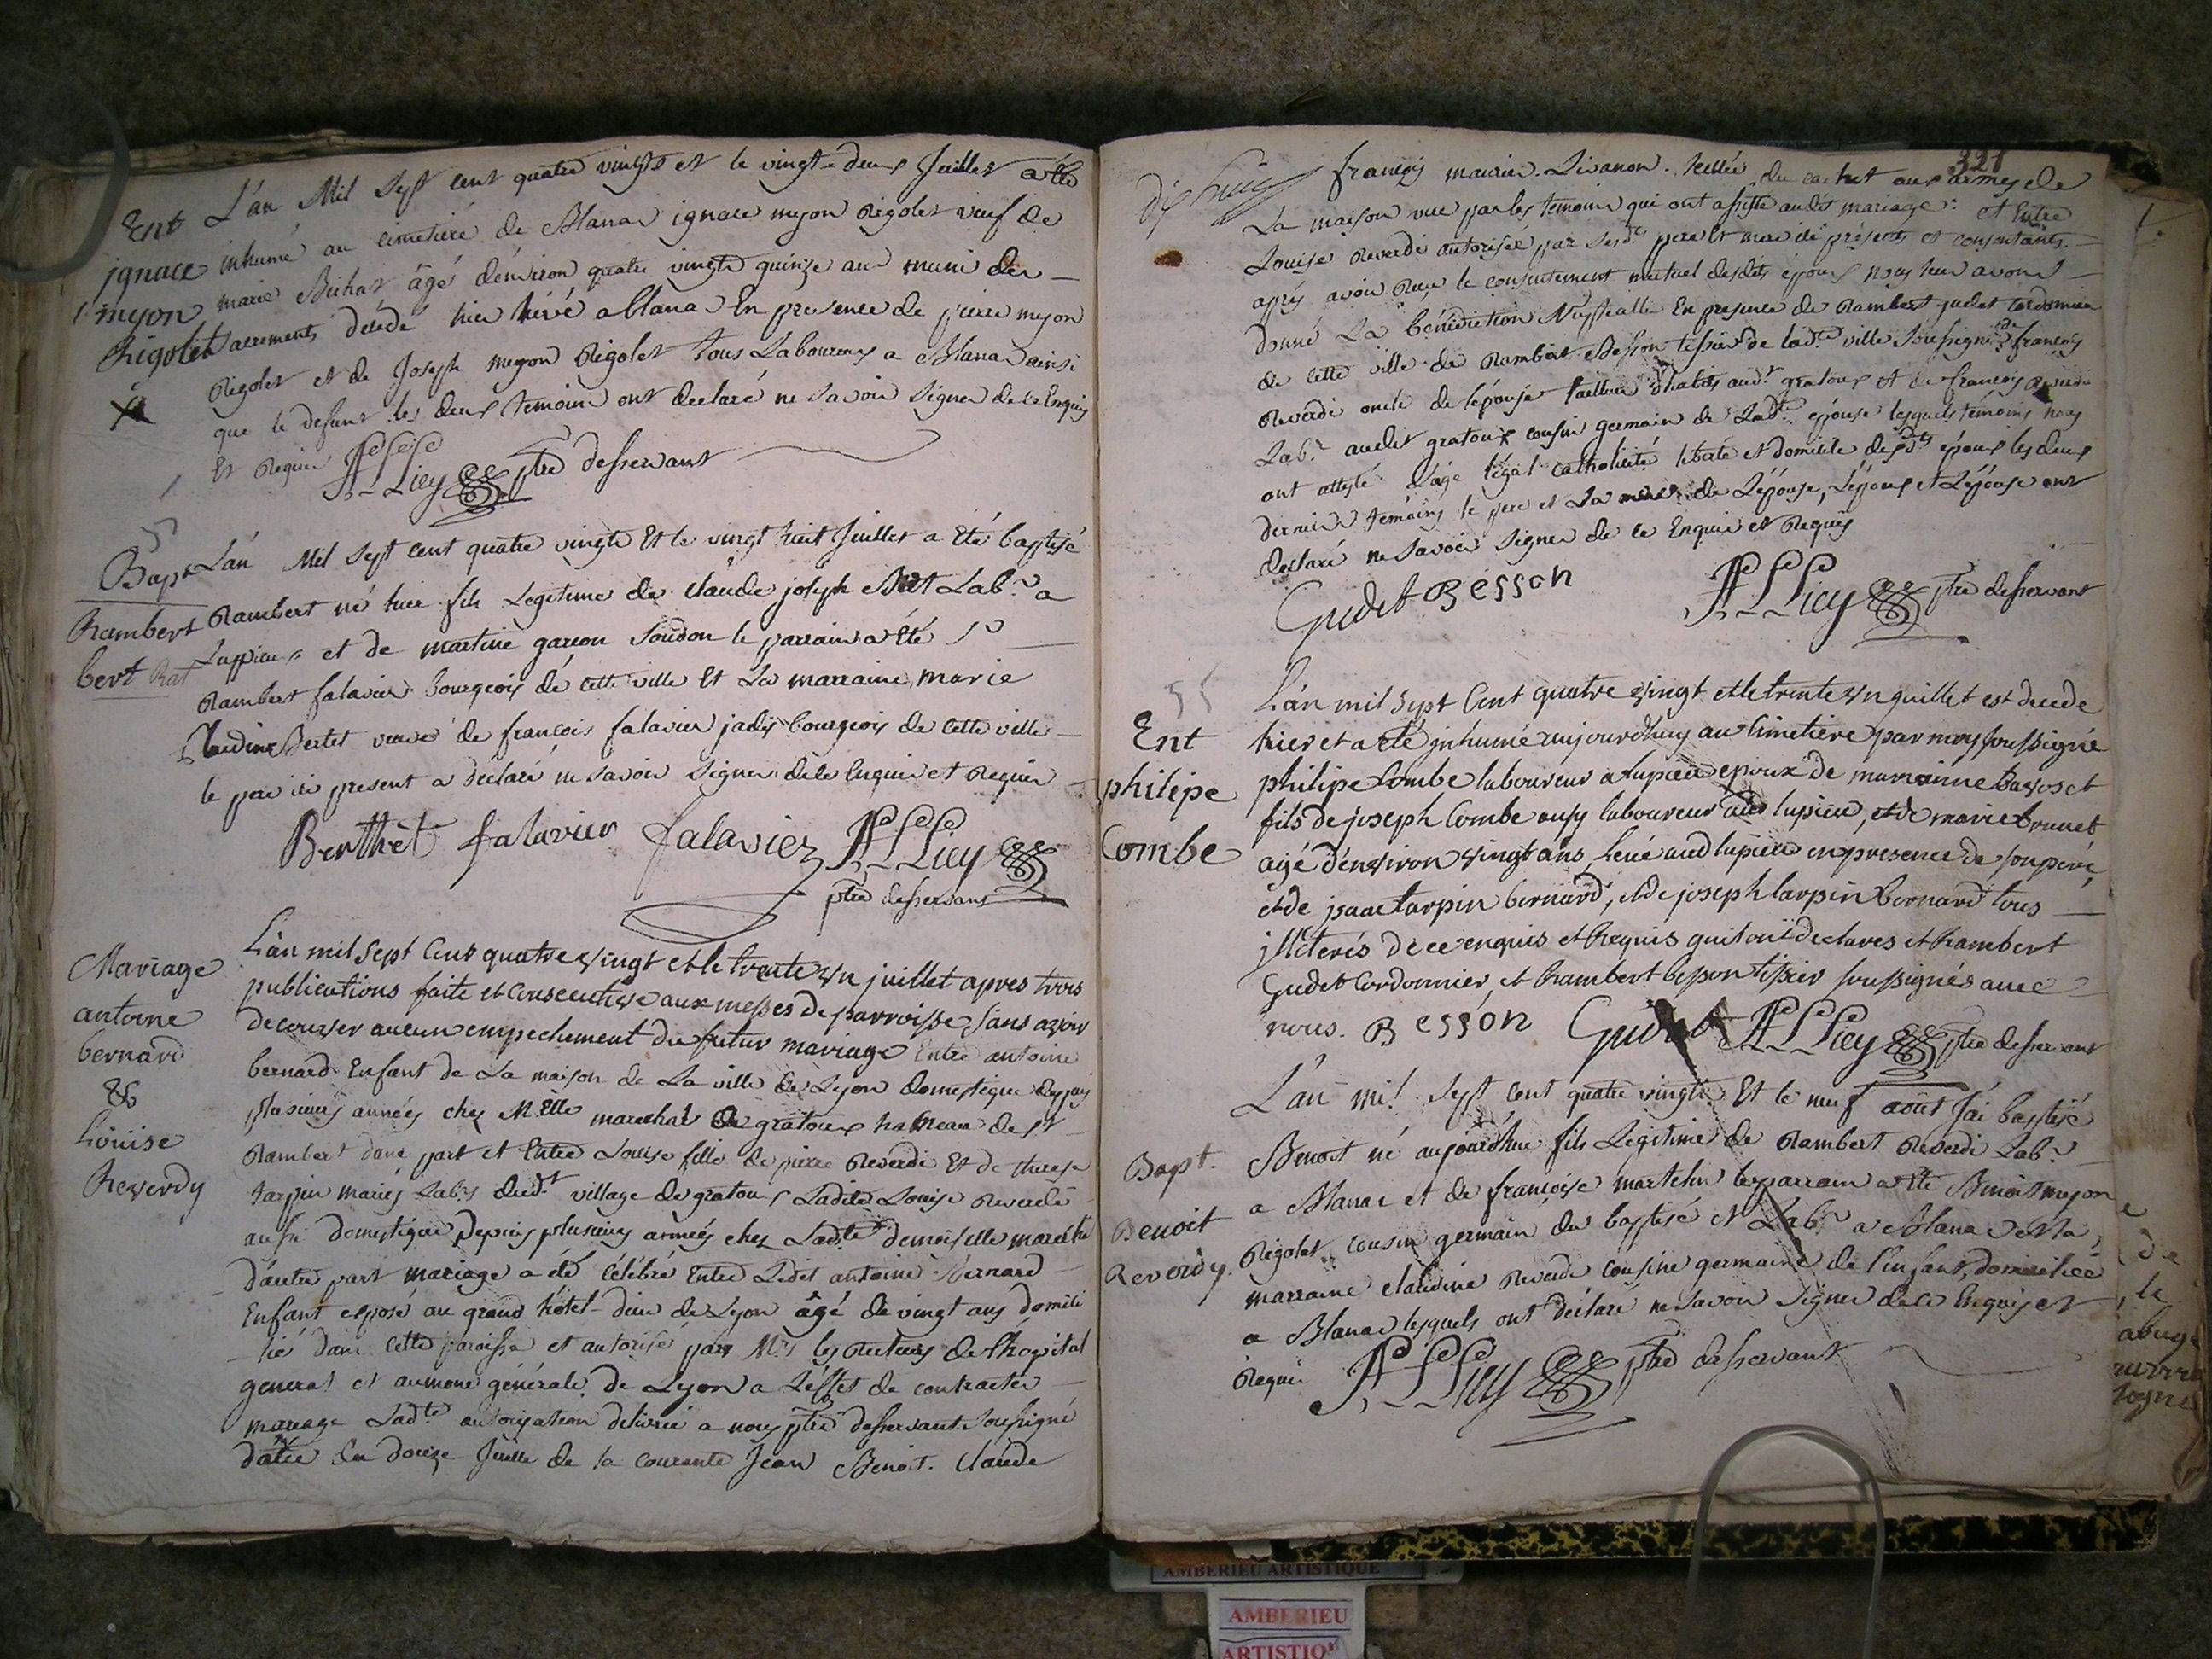 Ent
ignace
myon
Rigolet
L'an Mil sept cent quatre vingts et le vingt-deux Juillet a été
inhumé au cimetiere de Blanaz ignace myon Rigolet veuf de
marie Bichat âgé d'environ quatre vingts quinze ans muni des
sacrements décédé hier livré a blanaz En presence de pierre myon
Rigolet et de Joseph myon Rigolet tous Laboureurs a Blanaz ainsi
que le defunt les deux temoins ont declaré ne savoir signer de ce Enquis
Et Requis
ptre desservant
Bapt
Rambert
bert Rat
L'an Mil sept cent quatre vingts Et le vingt huit Juillet a été baptisé
Rambert né hier fils Legitime de claude joseph Lab.r a
Luppieu et de martine garçon soudon le parrain a Eté s.r
Rambert falavier bourgeois de cette ville Et La marraine marie
Claudine Bertet veuve de françois falavier jadis bourgeois de cette ville
le pere ici present a declaré ne savoir signer de ce Enquis et Requis
Berthet falavier falavier
ptre desservant
Mariage
antoine
bernard
&
Loüise
Reverdy
L'an mil sept Cent quatre vingt et le trente vn juillet apres trois
publications faite et Consecutive aux messes de parroisse, sans avoir
decouver aucun empechement du futur mariage Entre antoine
bernard Enfant de La maison de La ville de Lyon domestique depuis
plusieurs années chez M.elle marechal de gratoux hameau de st
Rambert d'une part et Entre Louise fille de pierre Reverdi Et de therese
tarpin mariés Lab.rs dud.t village de gratoux Ladite Louise Reverdi
aussi domestique depuis plusieurs années chez Lad.te demoiselle marechal
d'autre part mariage a été célébré Entre Ledit antoine Bernard
Enfant exposé au grand hôtel-dieu de Lyon âgé de vingt ans domici
lié dans cette paroisse et autorisé par M.rs les Recteurs de l'hopital
general et aumone générale de Lyon a L'effet de contracter
mariage Lad.te autorisation delivrée a nous ptre desservant soussigné
datée du douze Juillet de la courante Jean Benoit. Claude
321
françois maurice. Livanon. scellée du cachet aux armes de
La maison vue par les temoins qui ont assisté audit mariage: et Entre
Louise Reverdi autorisée par sesd. pere Et mere ici présents et consentants.
après avoir Reçu le consentement mutuel desdits époux nous leur avons
donné La bénédiction Nuptialle En presence de Rambert gudet Cordonnier
de cette ville de Rambert Besson tissier de lad.te ville soussignés de françois
Reverdi oncle de l'épouse tailleur d'habits aud.t gratoux et de françois Reverdi
Lab.r audit gratoux cousin germain de Lad.te épouse lesquels témoins nous
ont attesté L'âge légal catholicité liberté et domicile desd.ts époux les deux
derniers témoins le pere et La mere de L'épouse, L'époux et L'épouse ont
declaré ne savoir signer de ce Enquis et Requis
Gudet Besson
ptre desservant
Ent
philipe
Combe
L'an mil sept Cent quatre vingt et le trente vn juillet est decede
hier et a eté inhumé aujourdhuy au Cimetiere par moy soussigné
philipe Combe laboureur a lupieu epoux de marianne Bavoset
fils de joseph Combe ausy laboureur lupieu, et de marie brunet
agé d'environ vingt ans livré aud lupieu en presence de son pere,
et de jsaac tarpin bernard, et de joseph tarpin bernard tous
illeterés de ce enquis et Requis qui l'ont declarés et Rambert
Gudet Cordonnier, et Rambert besson tissier soussignés avec
nous. Besson Gudet
ptre desservant
Bapt.
Benoit
Reverdy.
L'an mil sept cent quatre vingts Et le neuf août J'ai baptisé
Benoit né aujourd'hui fils Legitime de Rambert Reverdi Lab.r
a Blanaz et de françoise martelin le parrain a été Benoit myon
Rigolet cousin germain du baptisé et Lab.r a Blanaz et la
marraine claudine Reverdi cousine germaine de l'enfant domiciliée
a Blanaz lesquels ont déclaré ne savoir signer de ce Enquis et
Requis
ptre desservant
AMBERIEU ARTISTIQUE
AMBERIEU
ARTISTIQ